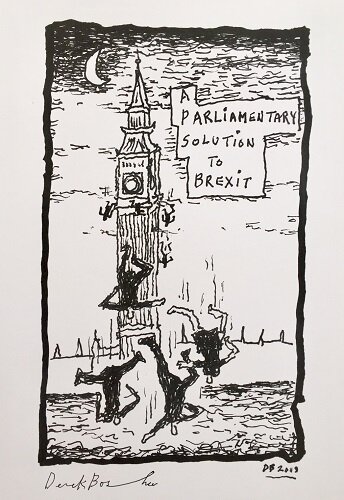 A
PARLIAMENTARY
SOLUTION
TO
BREXIT
DB 2019
Derek Boshier